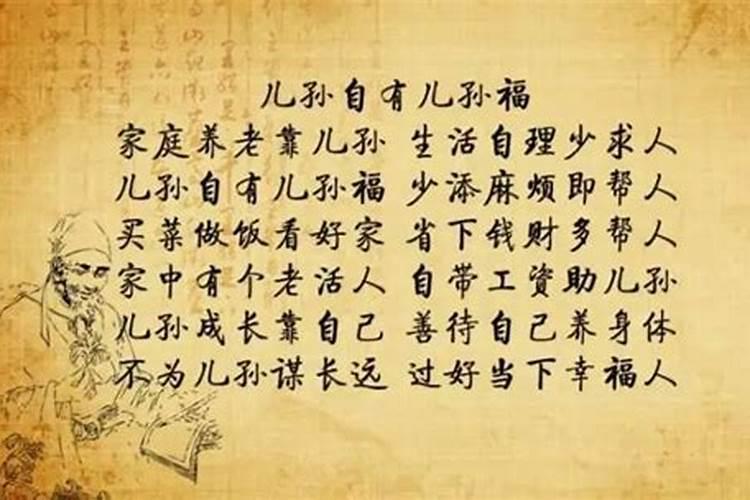 儿孙自有儿孙福
家庭养老靠儿孙 生活自理少求人
儿孙自有儿孙福 少添麻烦即帮人
买菜做饭看好家 省下钱财多帮人
家中有个老活人 自带工資助儿孙
儿孙成长靠自己 善待自己养身体
不为儿孙谋长远 过好当下幸福人